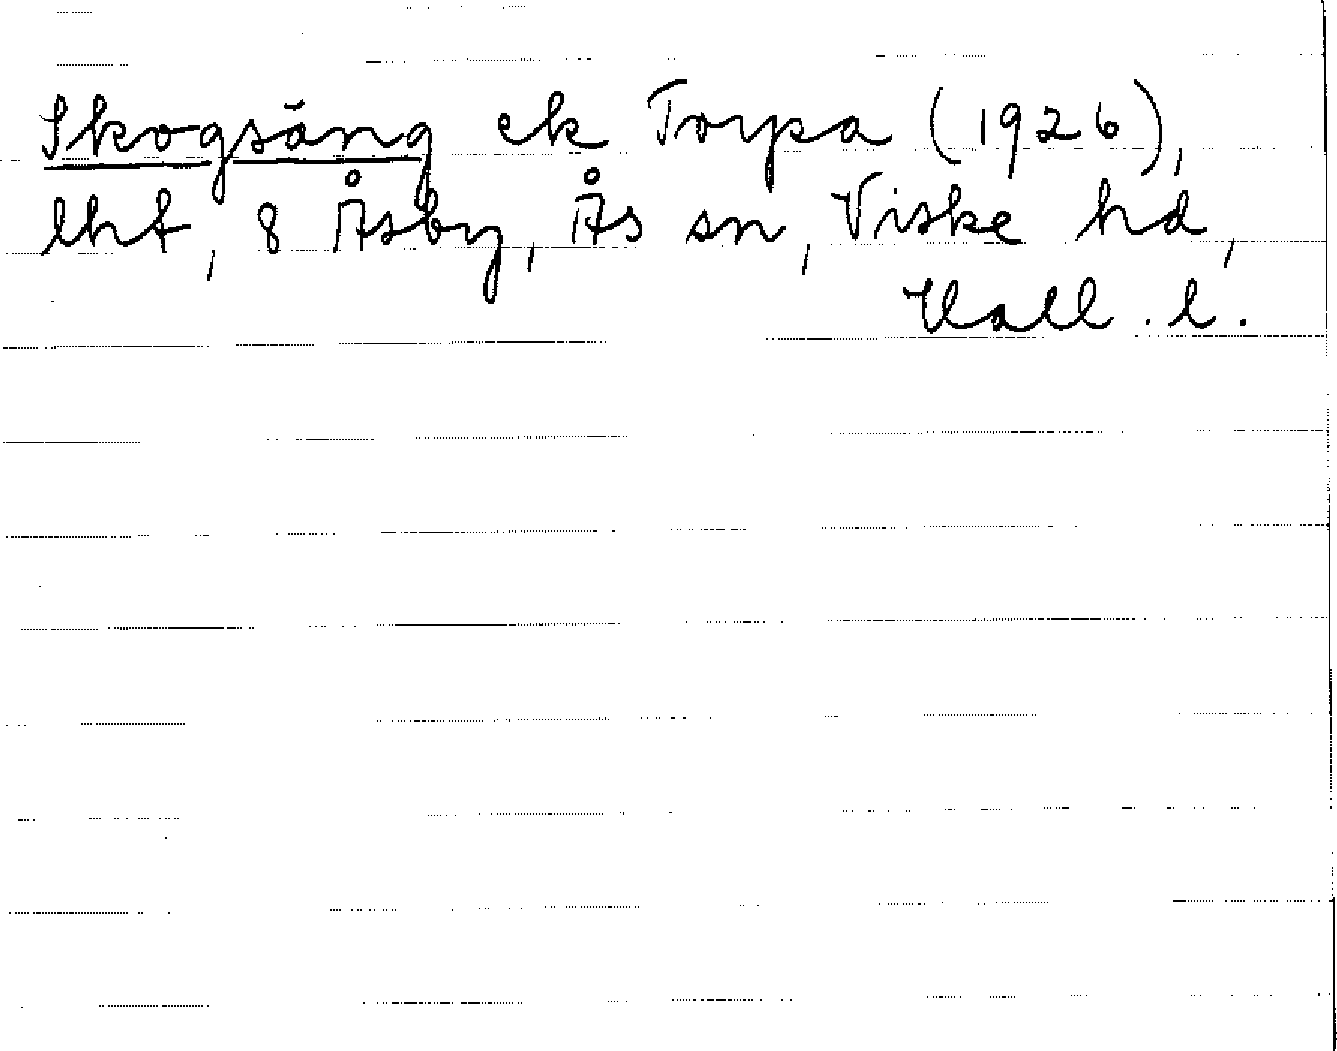 Skogsäng ek Torpa (1926),
lht, 8 Åsby, Ås sn, Viske hd,
Hall. l.